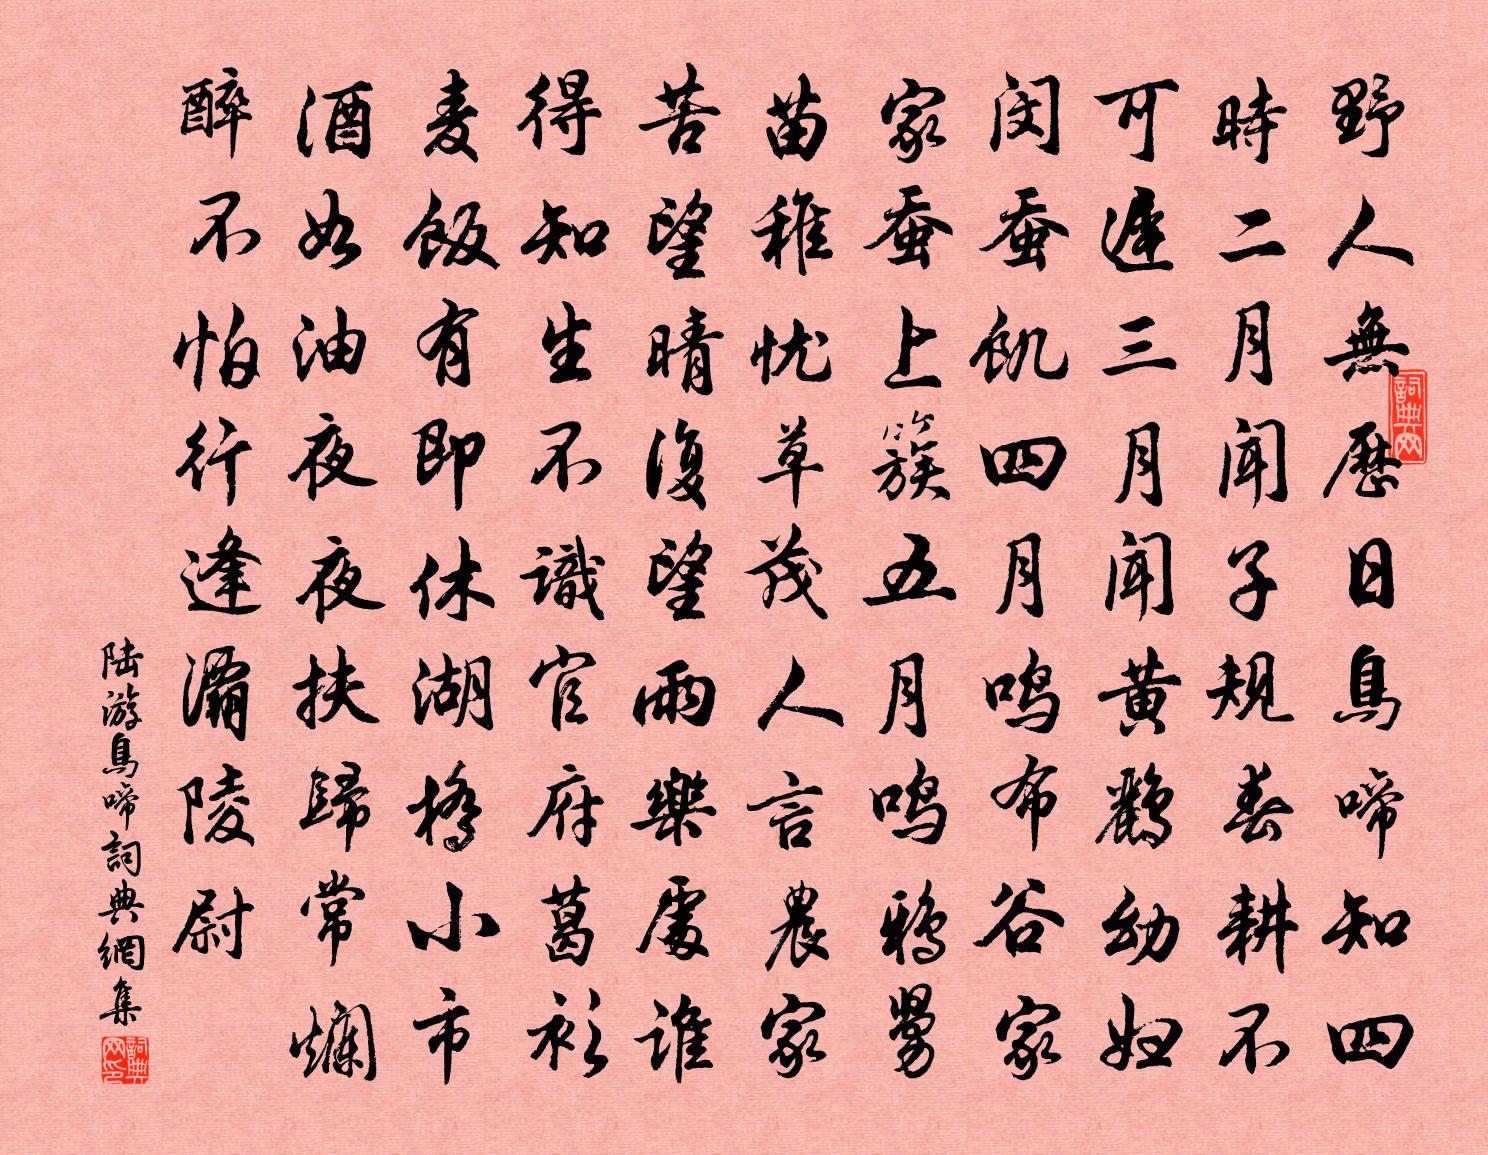 野人無歷日鳥啼知四
時二月聞子規春耕不
可遲三月聞黃鸝幼妇
闵蚕飢四月鸣布谷家
家蚕上簇五月鸣鴉舅
苗稚忧草茂人言農家
苦望晴復望雨樂處誰
得知生不識官府葛衫
麦飯有即休湖橋小市
酒如油夜夜扶歸常爛
醉不怕行逢灞陵尉
陆游鳥啼詞典網集
詞典网
詞典网印